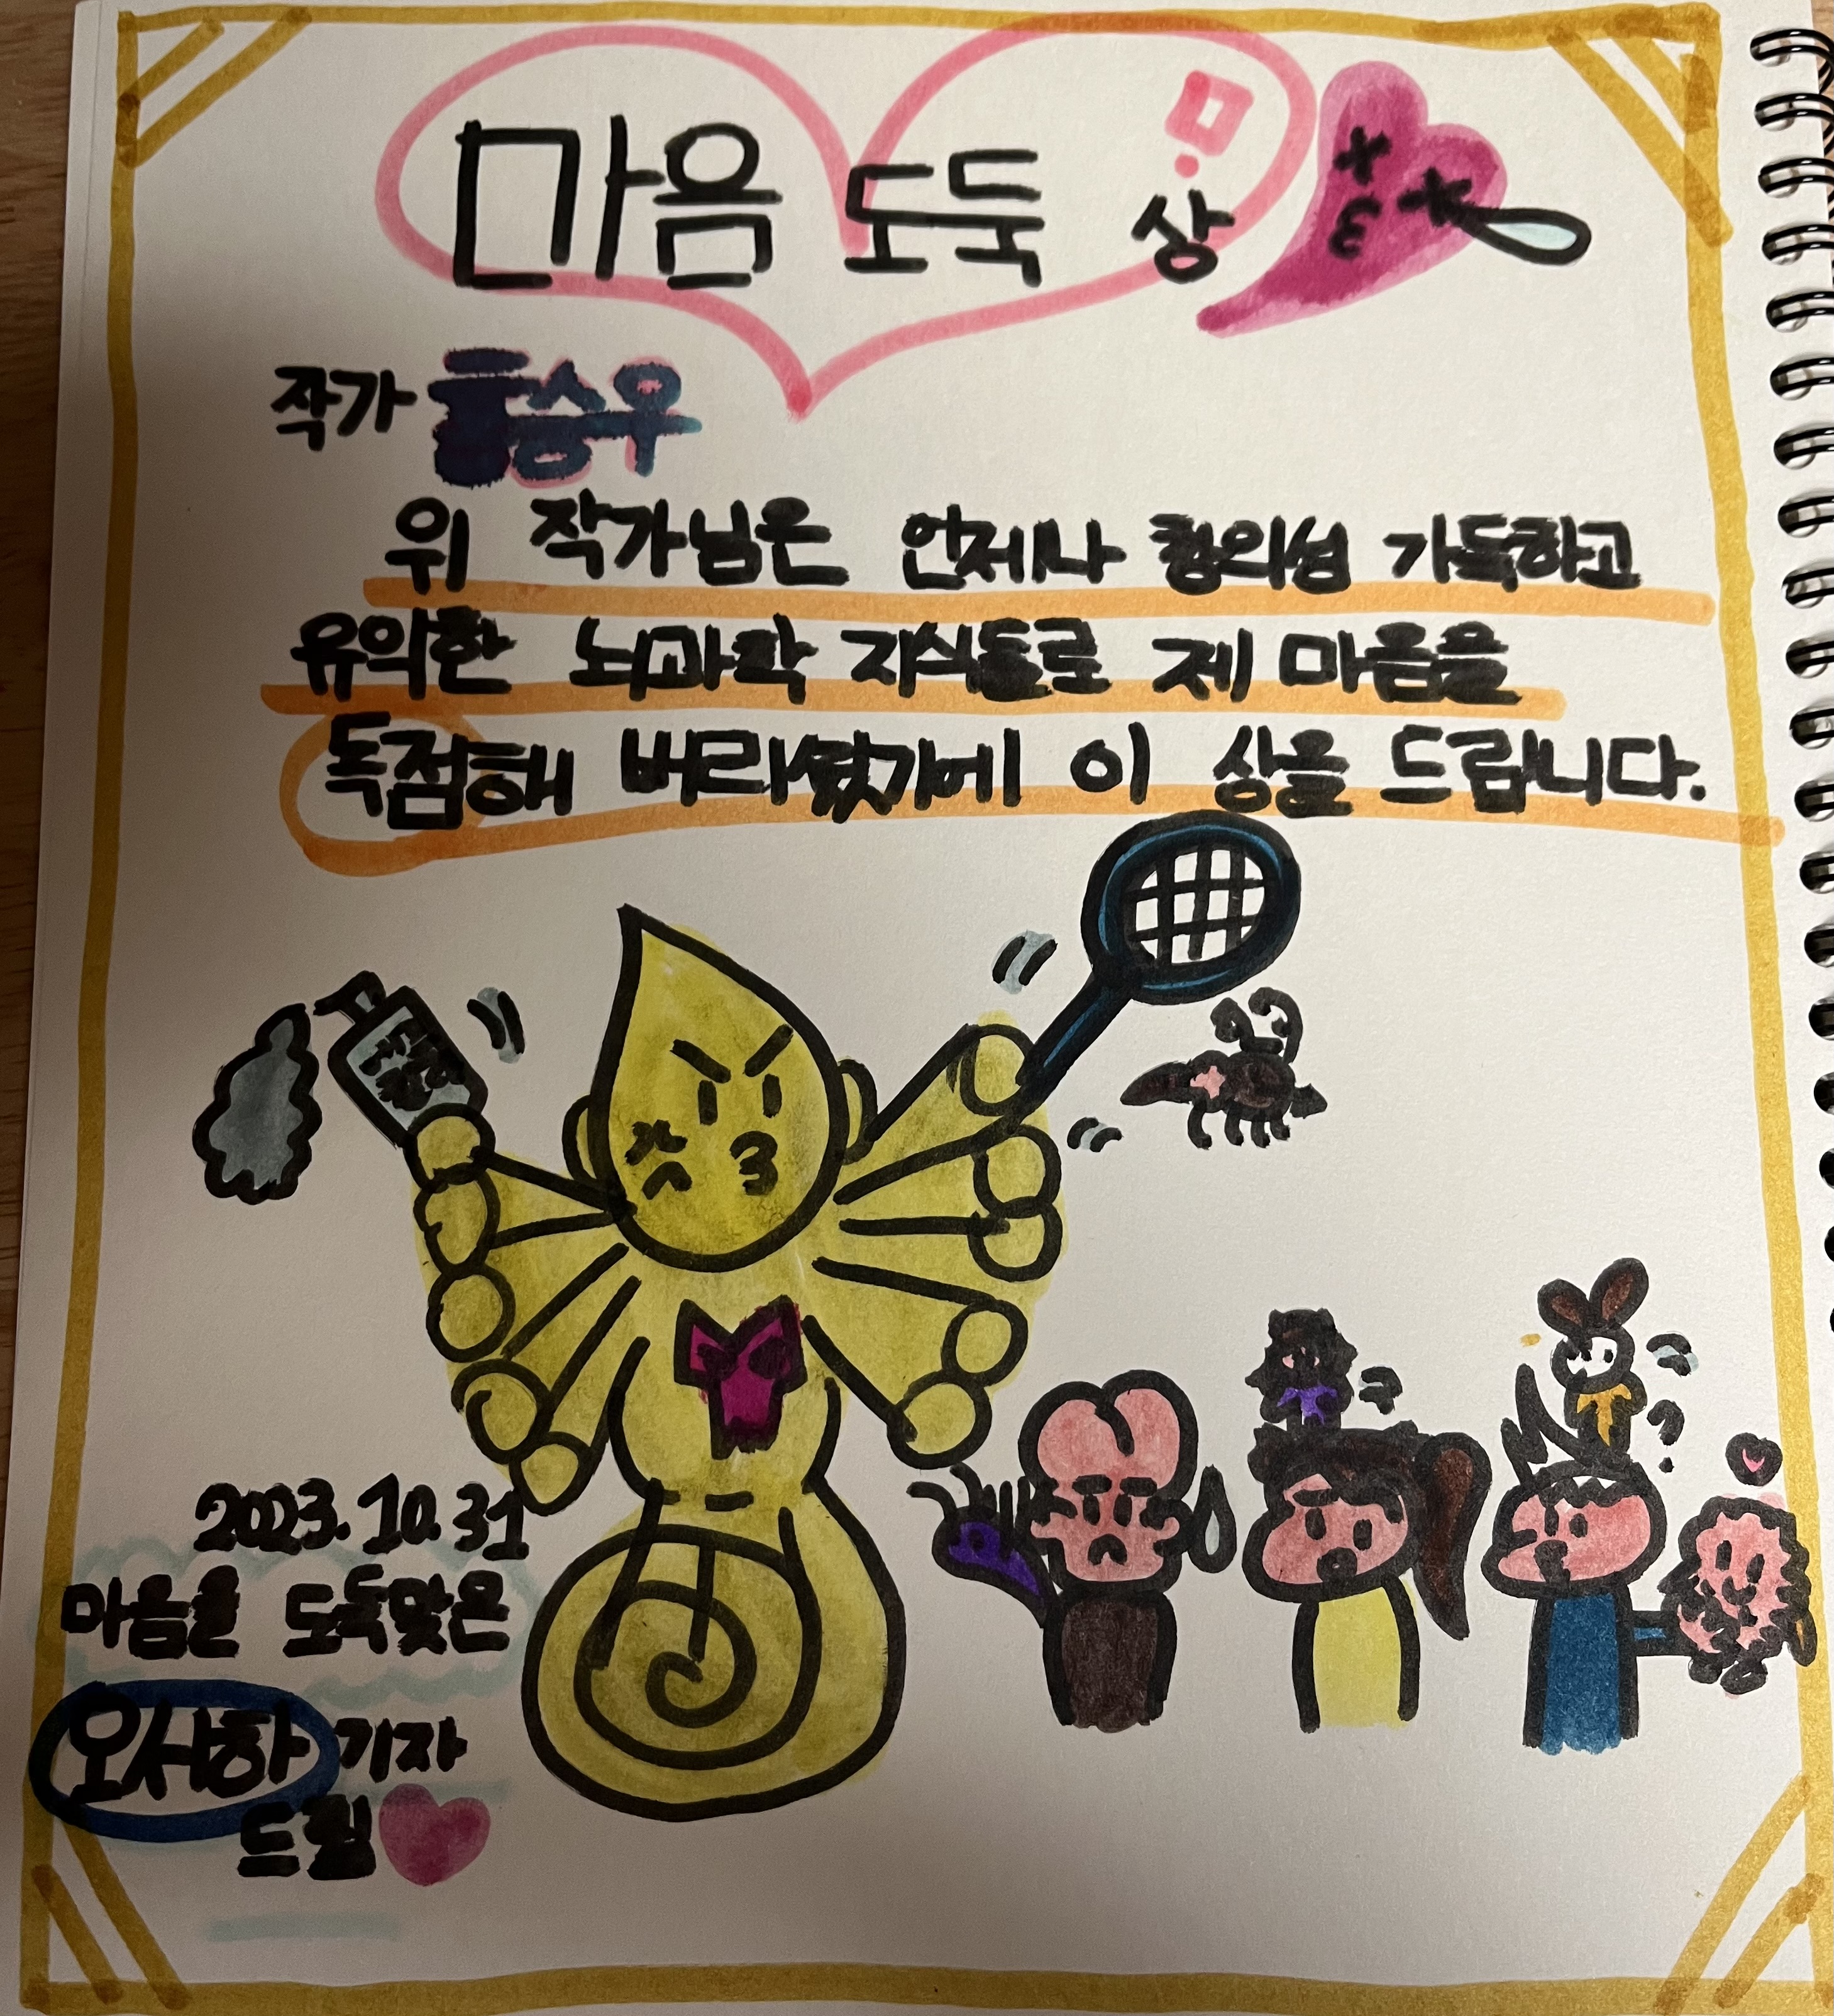 마음 도둑 상
작가 홍승우
위 작가님은 언제나 창의성 가득하고
유익한 뇌과학 지식들로 제 마음을
독점해 버리셨기에 이 상을 드립니다.
2023. 10. 31
마음을 도둑맞은
오서하 기자
드림